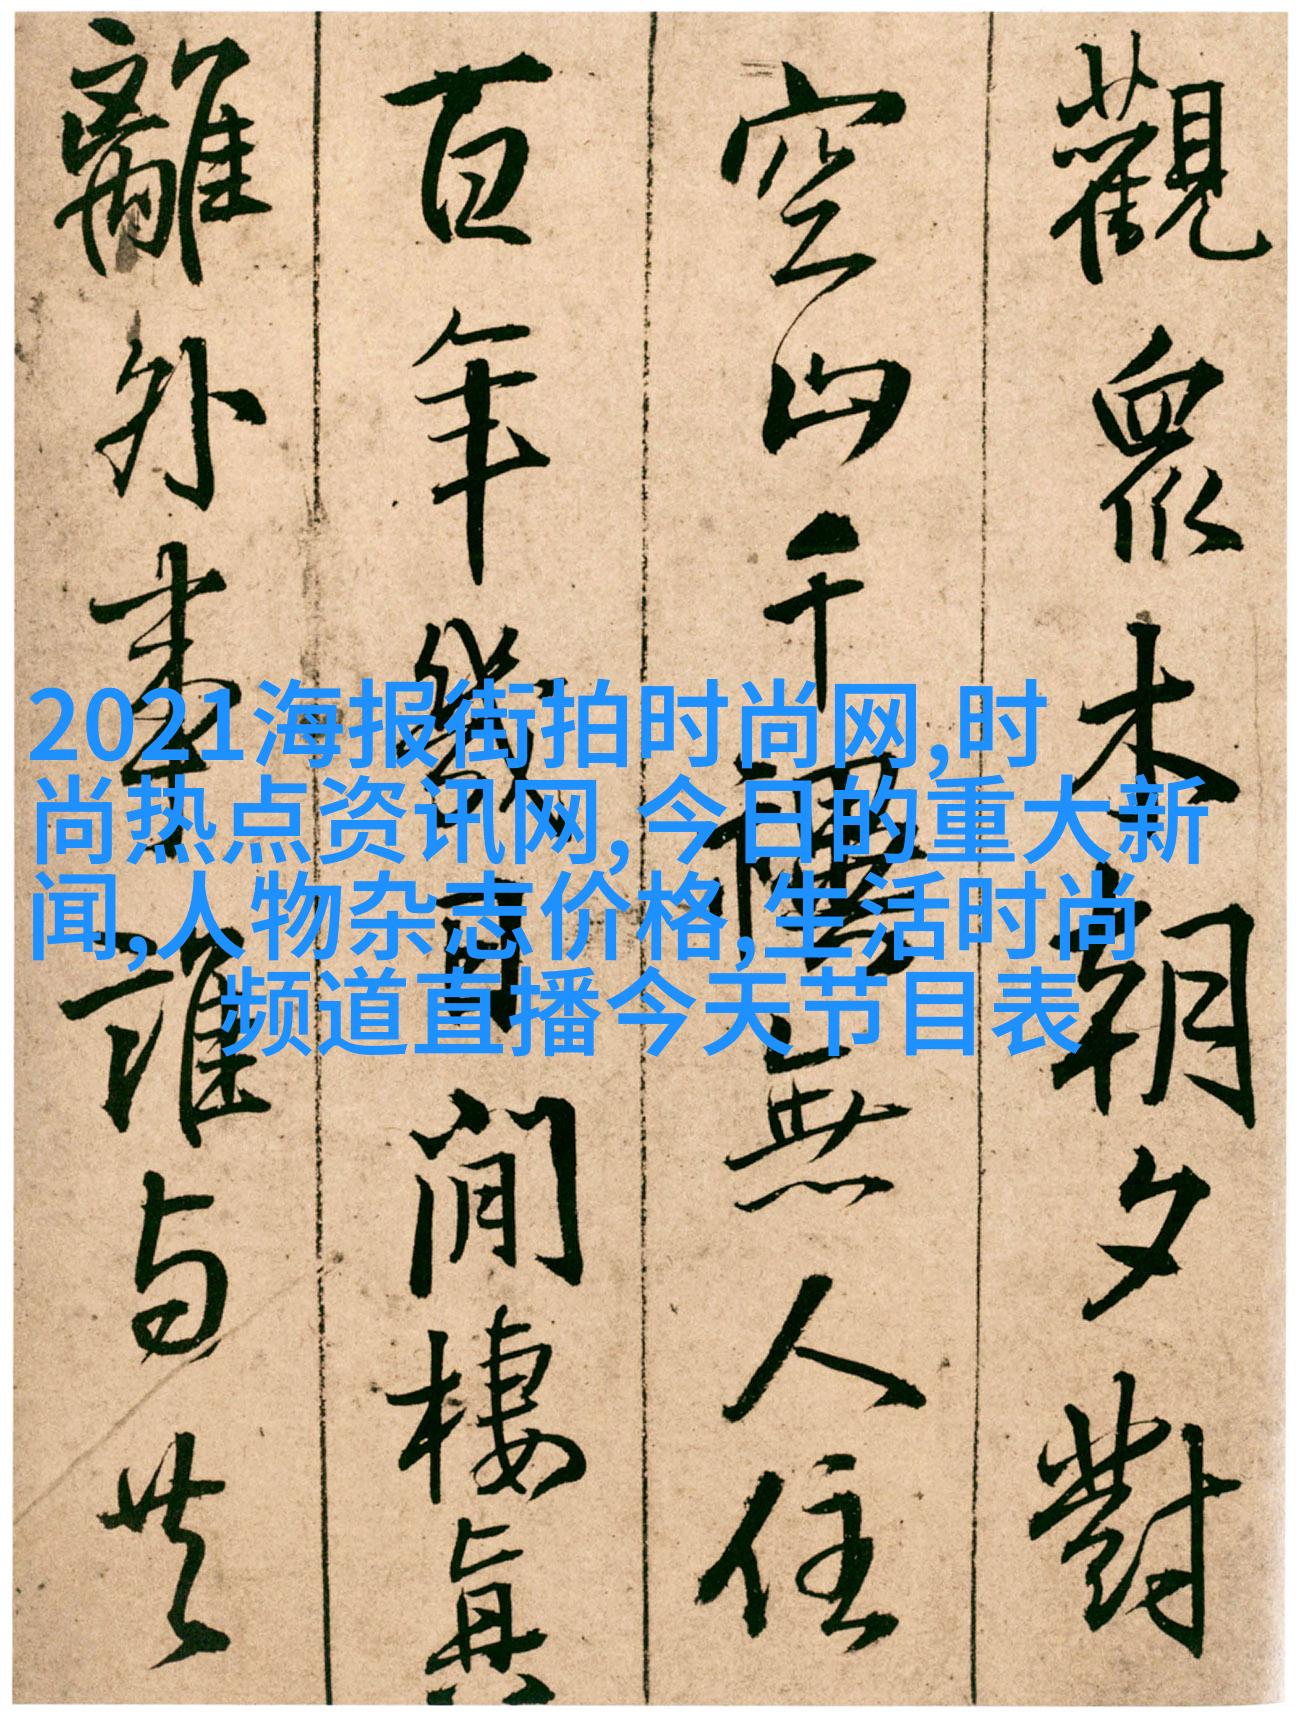 觀眾木朝夕對
空山千禩無人住
百年幾閒棲真
離外誰与共
2021海报街拍时尚网,时
尚热点资讯网, 今日的重大新
闻,人物杂志价格,生活时尚
频道直播今天节目表